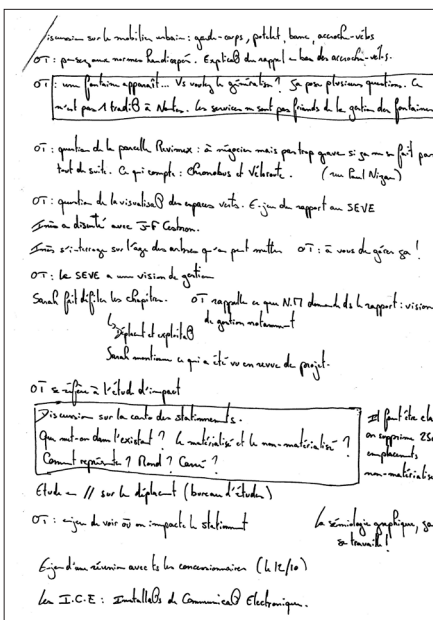 Discussion sur le mobilier urbain : garde-corps, potelet, banc, accroche-vélos
OT : pensez aux normes handicapés. Explicat° du rappel en bas des accroche-vélos.
OT : une fontaine apparaît... Vs voulez la généralisation ? Ça pose plusieurs questions. Ce
n'est pas 1 tradit° à Nantes. Les services ne sont pas friands de la gestion des fontaines
OT : question de la parcelle : à négocier mais pas trop grave si ça ne se fait pas
tout de suite. Ce qui compte : Chronobus et Véloroute. (rue Paul Nizan)
OT : question de la visualisat° des espaces verts. Enjeu du rapport au SEVE
Inès a discuté avec J-F
Inès s'interroge sur l'âge des arbres qu'on peut mettre OT : à vous de gérer ça !
OT : Le SEVE a une vision de gestion
Sarah fait défiler les chapitres. OT rappelle ce que N.M demande ds le rapport : vision
de gestion notamment
Déplact et exploitat°
Sarah mentionne ce qui a été vu en revue de projet.
OT se réfère à l'étude d'impact
Discussion sur la carte des stationnements.
Que met-on dans l'existant ? Le matérialisé et le non-matérialisé ?
Comment représenter ? Rond ? Carré ?
Il faut être
on supprime
emplacements
non-matérialisés
Etude en // sur le déplact (bureau d'études)
OT : enjeu de voir où on impacte le stationnement
La sémiologie graphique, ça
se travaille !
Enjeu d'une réunion avec ts les concessionnaires (le 12/10)
Les I.C.E : Installat°s de Communicat° Electronique.